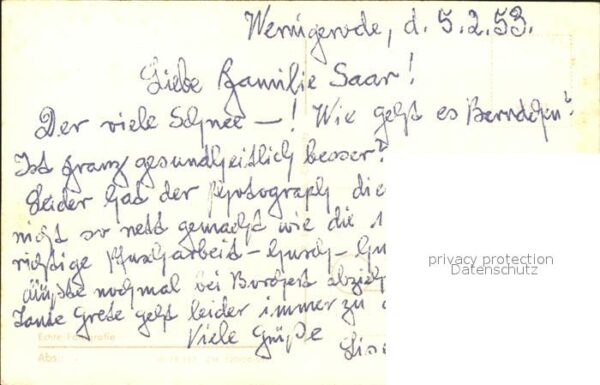 Wernigerode, d. 5.2.53.
Liebe Familie Saar!
Der viele Schnee –! Wie geht es Berndchen?
Ist Franz gesundheitlich besser?
Leider hat der Photograph die
nicht so nett gemacht wie die 1
richtige Pfuscharbeit – husch – hu
müßte nochmal bei Borchert abzieh
Tante Grete geht leider immer zu
Viele Grüße
Lise
privacy protection
Datenschutz
Echte Fotografie
Abs.: